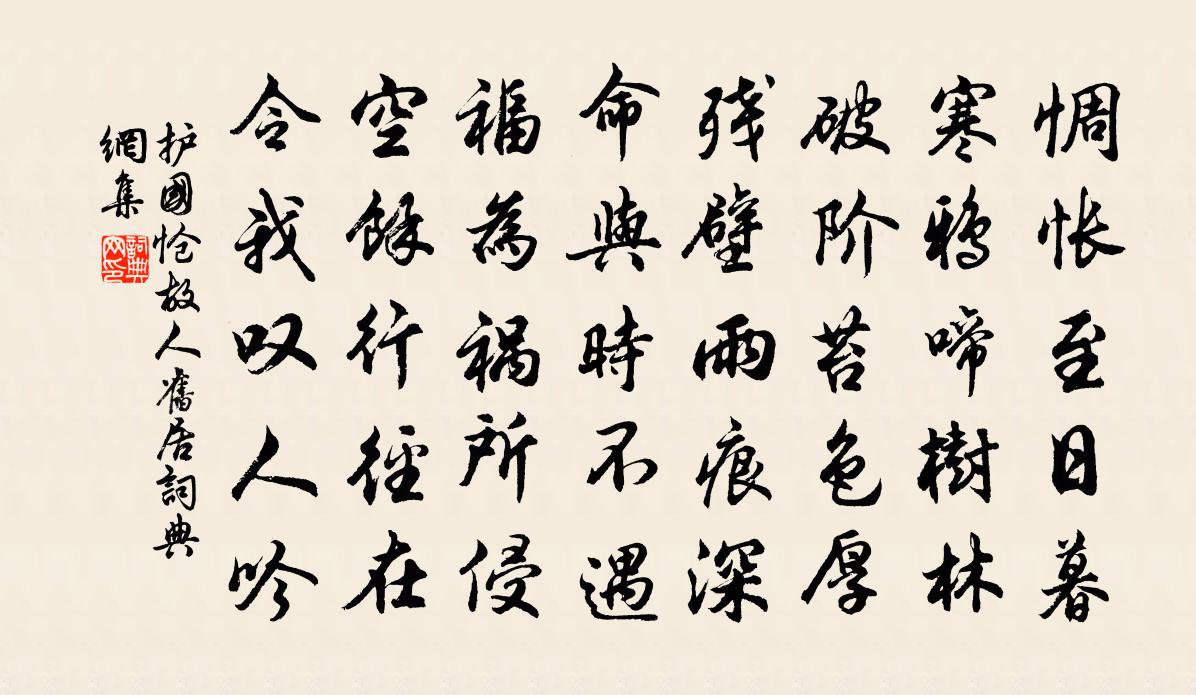 惆怅至日暮
寒鸦啼樹林
破阶苔色厚
残壁雨痕深
命與時不遇
福為祸所侵
空餘行徑在
令我叹人吟
护國怆故人舊居詞典
網集
詞典
网印